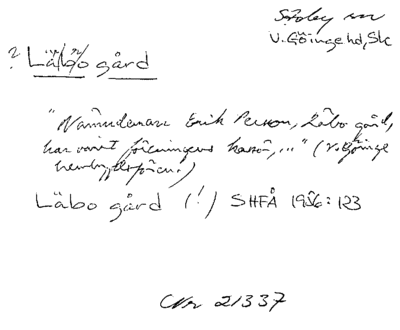 Stoby sn
V. Göinge hd, Sk
? Läbo gård
"Nämndeman Erik Persson, Läbo gård,
har varit föreningens kassör,..." (V. Göinge
hembygdsfören.)
Läbo gård (!) SHFÅ 1956:123
CNr 21337